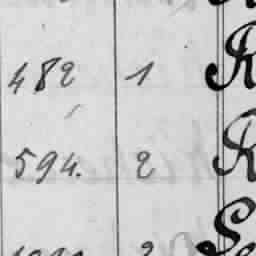 482 1 R
594. 2 R